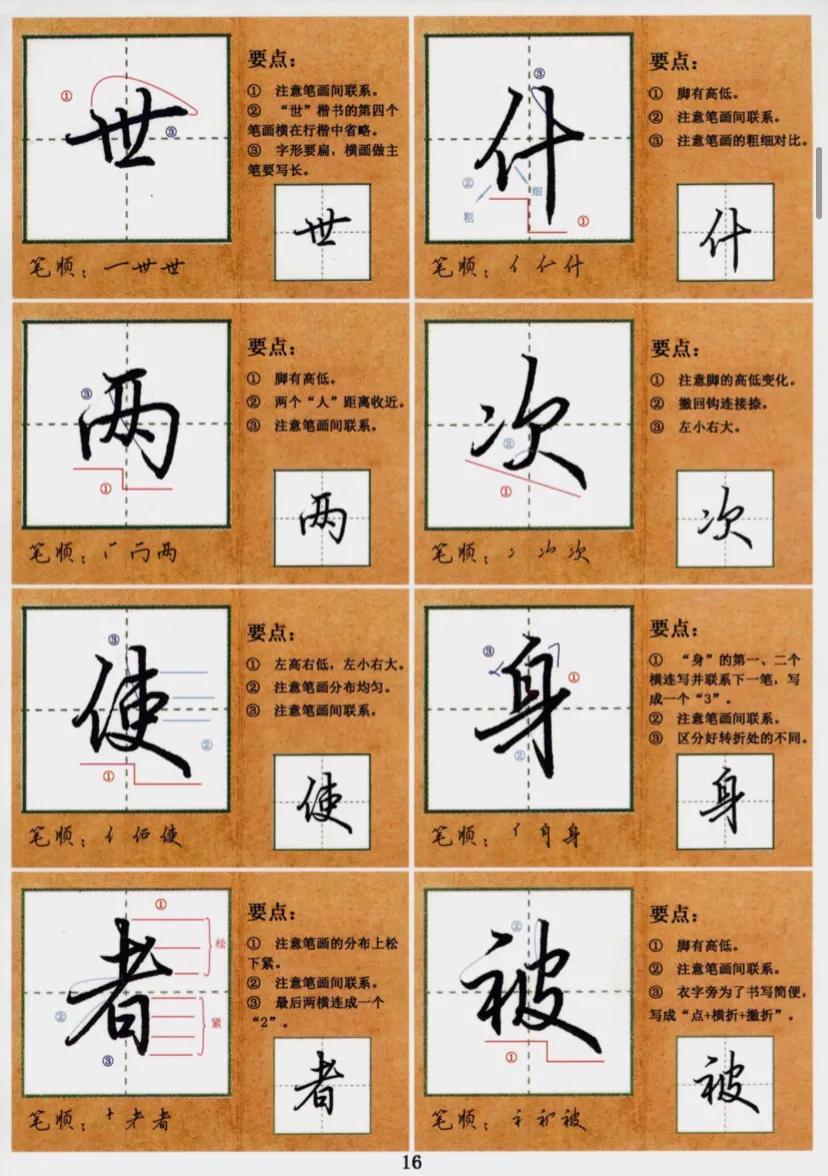 世
①
③
要点：
① 注意笔画间联系。
② “世”楷书的第四个
笔画横在行楷中省略。
③ 字形要扁，横画做主
笔要写长。
世
笔顺：一 世 世
什
③
②
粗
细
①
要点：
① 脚有高低。
② 注意笔画间联系。
③ 注意笔画的粗细对比。
什
笔顺：亻 仁 什
两
③
①
要点：
① 脚有高低。
② 两个“人”距离收近。
③ 注意笔画间联系。
两
笔顺：两
次
②
①
要点：
① 注意脚的高低变化。
② 撇回钩连接捺。
③ 左小右大。
次
笔顺：次
使
③
②
①
要点：
① 左高右低，左小右大。
② 注意笔画分布均匀。
③ 注意笔画间联系。
使
笔顺：亻 佰 使
身
③
①
②
要点：
① “身”的第一、二个
横连写并联系下一笔，写
成一个“3”。
② 注意笔画间联系。
③ 区分好转折处的不同。
身
笔顺：身
者
①
松
②
紧
③
要点：
① 注意笔画的分布上松
下紧。
② 注意笔画间联系。
③ 最后两横连成一个
“2”。
者
笔顺：十 耂 者
被
②
①
要点：
① 脚有高低。
② 注意笔画间联系。
③ 衣字旁为了书写简便，
写成“点+横折+撇折”。
被
笔顺：被
16